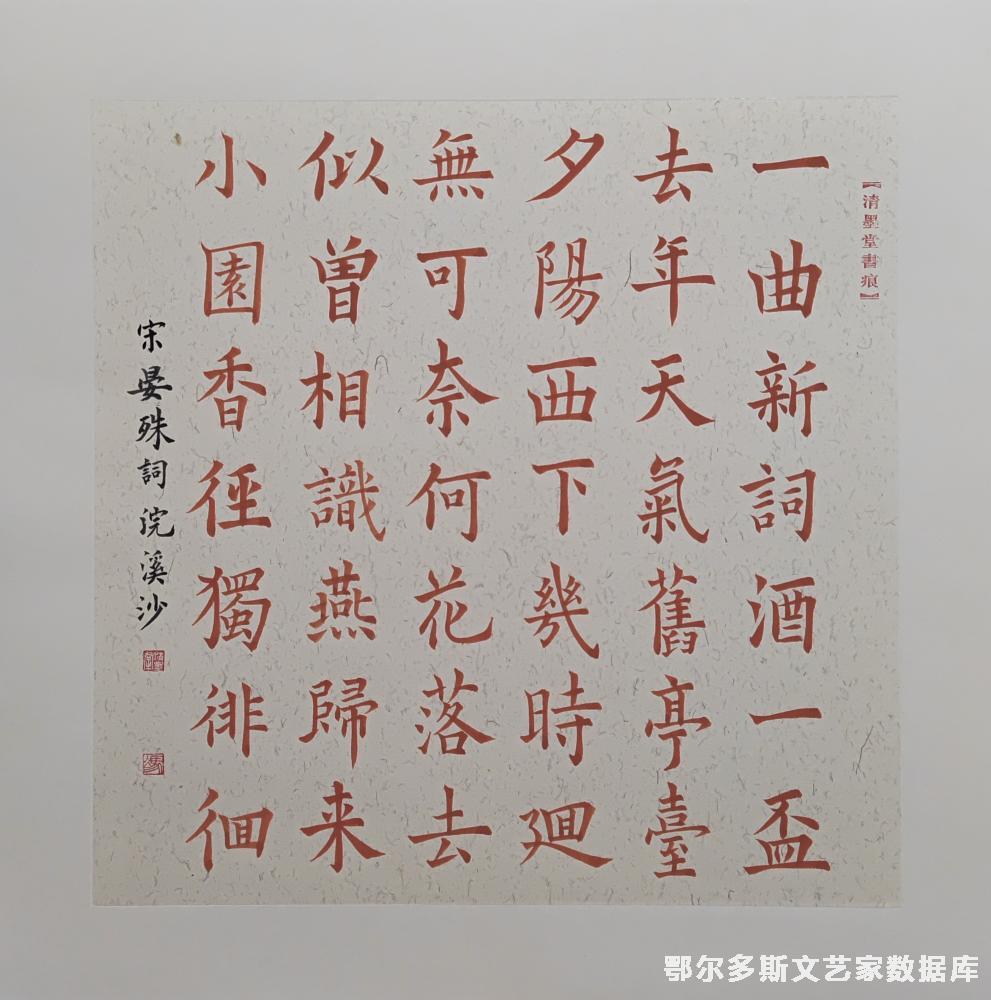 【清墨堂書痕】
一曲新詞酒一盃
去年天氣舊亭臺
夕陽西下幾時廻
無可奈何花落去
似曽相識燕歸来
小園香徑獨徘徊
宋晏殊詞浣溪沙
鄂尔多斯文艺家数据库